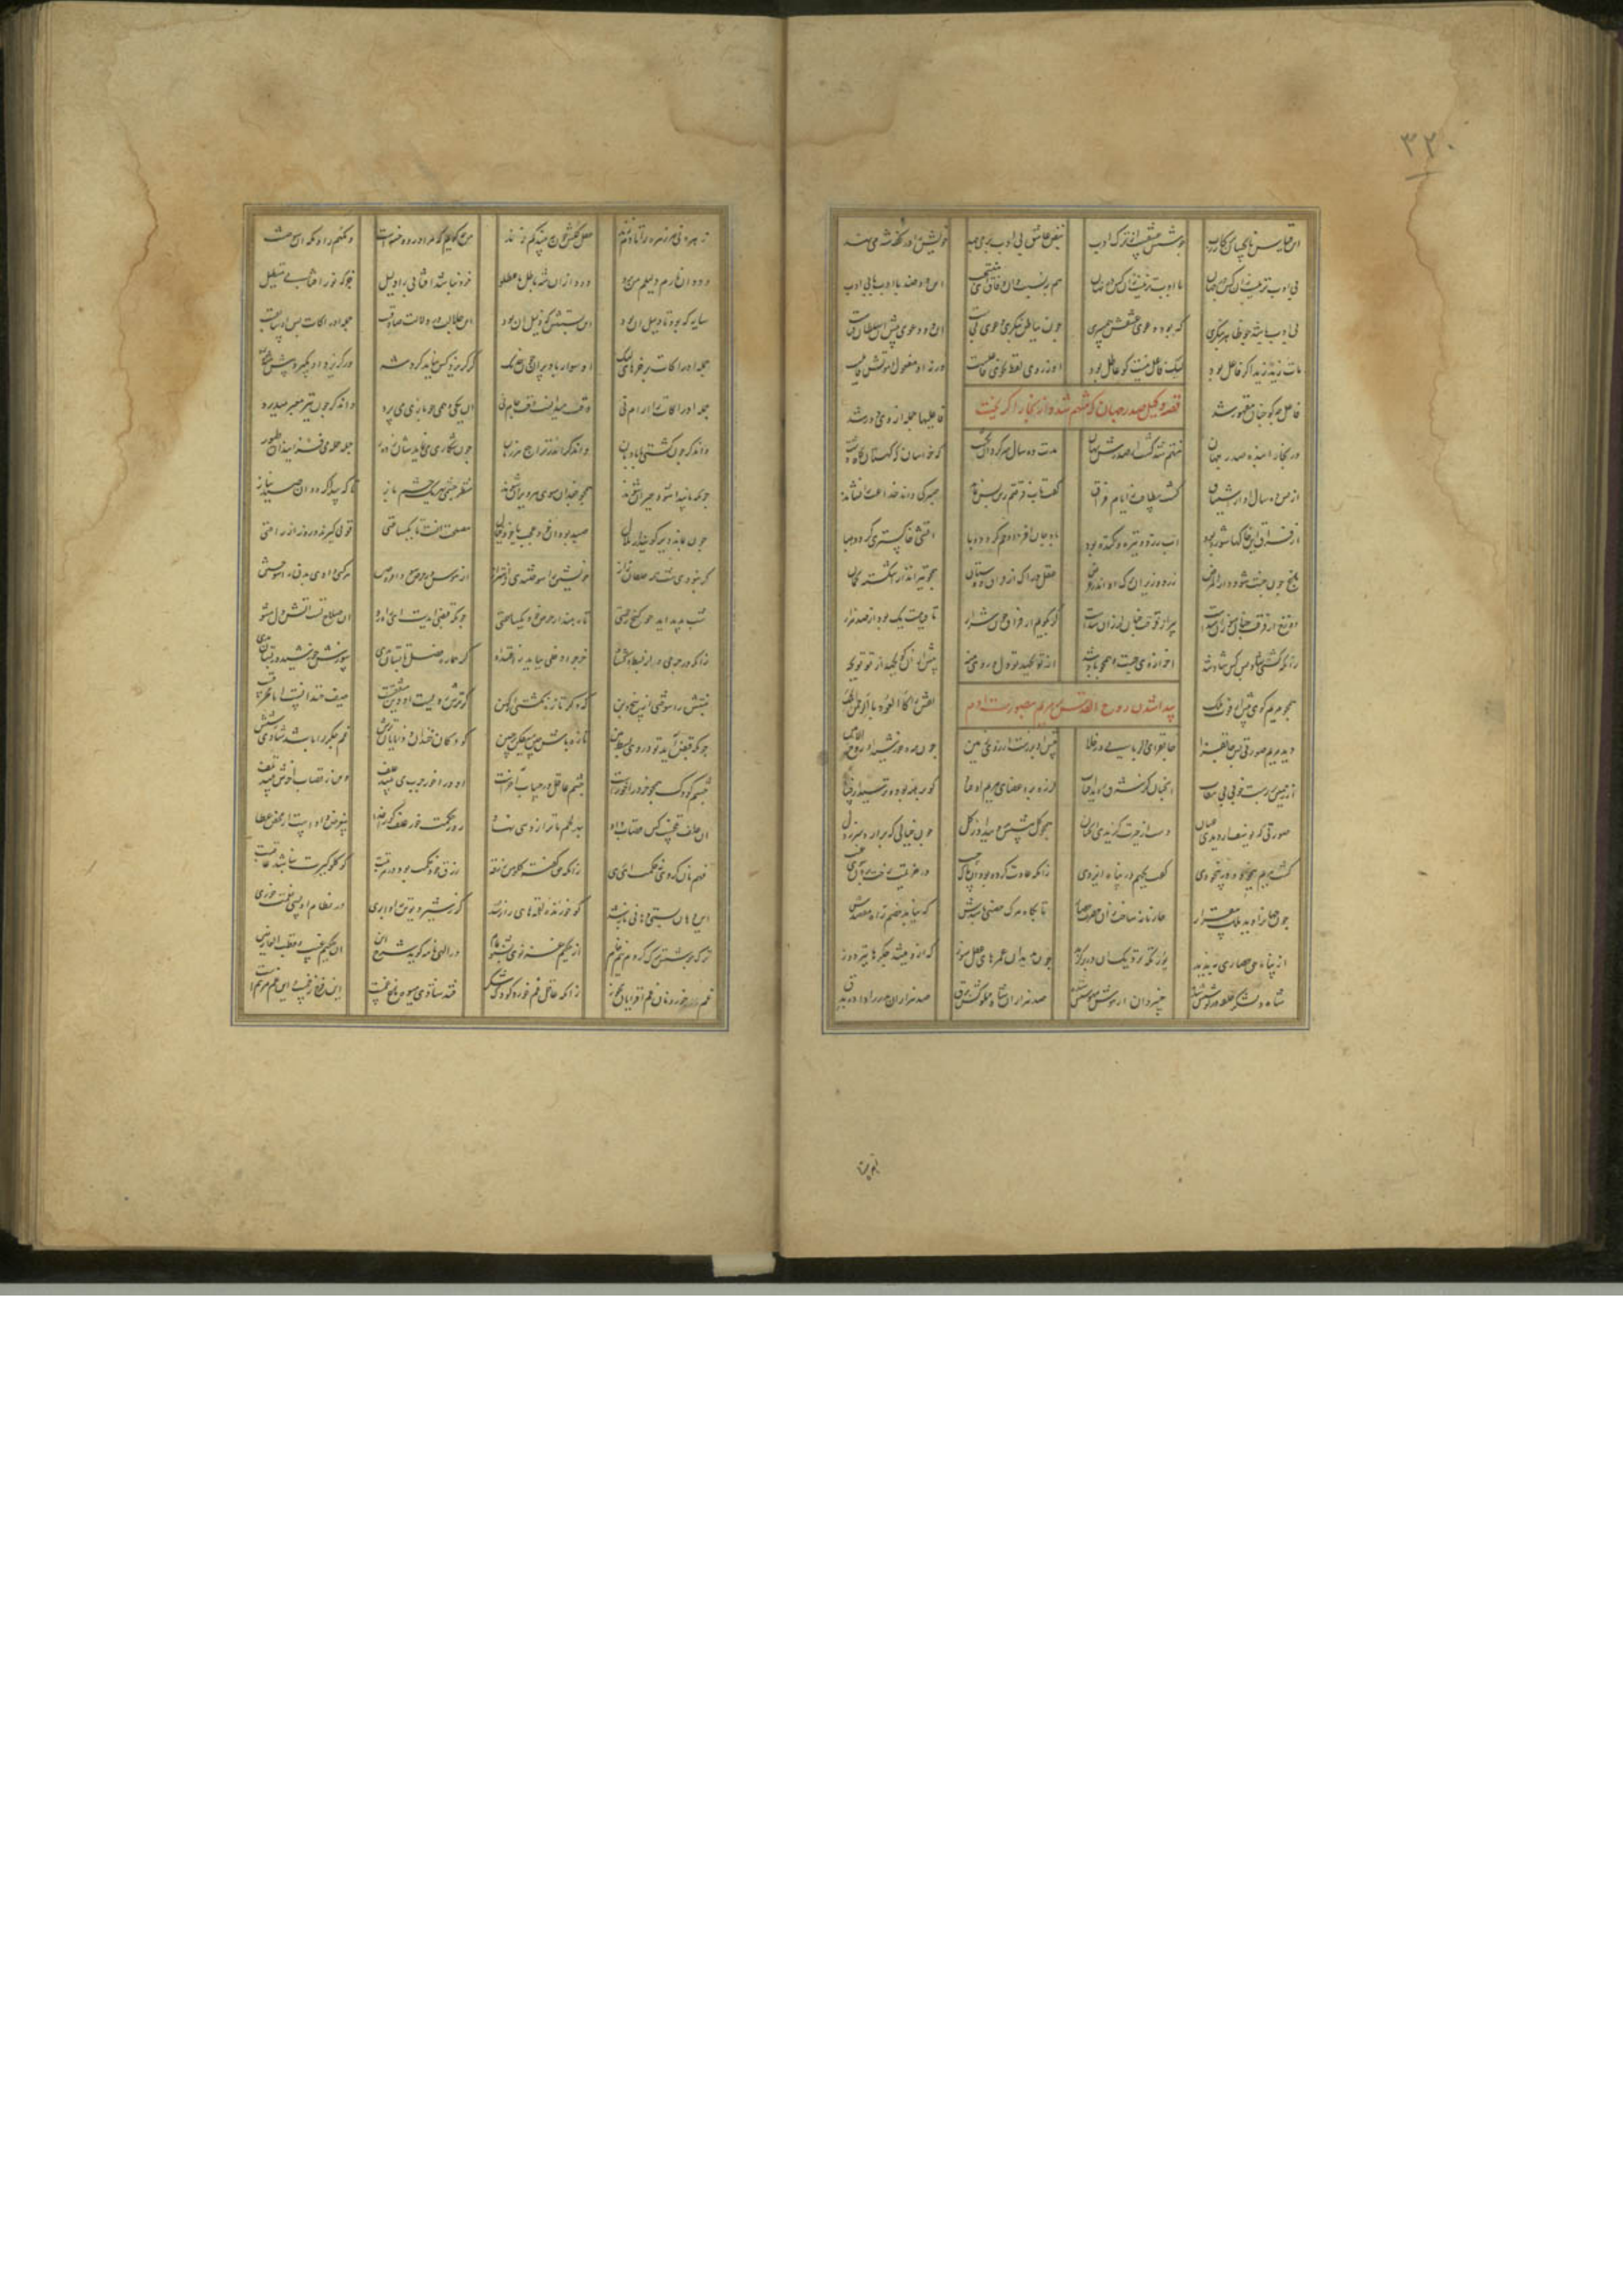 ۳۳۰
این قیاس ناقصان بر کار رب جوشش عشقست نه از ترک ادب نبض عاشق بی ادب بر می جهد خویش را در کفه شه می نهد
بی ادب تر نیست زان کس در جهان با ادب تر نیست زان کس در نهان هم بنسبت دان وفاق ای منتجب این دو ضد با ادب با بی ادب
بی ادب باشد چو ظاهر بنگری که بود دعوی عشقش همسری چون بباطن بنگری دعوی کجاست او و دعوی پیش آن سلطان فناست
مات زید زید اگر فاعل بود لیک فاعل نیست کو عاطل بود او ز روی لفظ نحوی فاعلست ورنه او مفعول و موتش قاتلست
فاعل چه کو چنان مقهور شد فاعلیها جمله از وی دور شد
قصه وکیل صدر جهان که متهم شد و از بخارا گریخت
در بخارا بنده صدر جهان متهم شد گشت از صدرش نهان مدت ده سال سرگردان بگشت که خراسان که کهستان گاه دشت
از پس ده سال او از اشتیاق گشت بیطاقت ز ایام فراق گفت تاب فرقتم زین پس نماند صبر کی داند خلاعت را نشاند
از فراق این خاکها شوره بود آب زرد و تیره و گنده بود باد جان افزا وخم گردد وبا آتشی خاکستری گردد هبا
باغ چون جنت شود دار المرض زرد و ریزان برگ او اندر حرض عقل دراک از فراق دوستان همچو تیرانداز اشکسته کمان
دوزخ از فرقت چنان سوزان شدست پیر از فرقت چنان لرزان شدست گر بگویم از فراق چون شرار تا قیامت یک بود از صد هزار
زانکه گشتی شاد بس کس شاد شد آخر از وی جست و همچو باد شد از تو هم بجهد تو دل بر وی منه پیش از آن کو بجهد از تو تو بجه
همچو مریم گوی پیش از فوت ملک نقش را کالعوذ بالرحمن منک
پیدا شدن روح القدس بر مریم بصورت آدم
دید مریم صورتی بس جانفزا جانفزای دلربایی در خلا پیش او بر رست از روی زمین چون مه و خورشید آن روح الامین
از زمین بر رست خوبی بی نقاب آنچنان کز شرق روید آفتاب لرزه بر اعضای مریم اوفتاد کو برهنه بود و ترسید از فساد
صورتی که یوسف ار دیدی عیان دست از حیرت همچو گل پیشش بروید از گل چون خیالی که بر آرد سر ز دل
گشت مریم بیخود و در بیخودی گفت بجهم در پناه ایزدی زانکه عادت کرده بود آن پاک جیب در هزیمت رخت بردن سوی غیب
چون جهان را دید ملک بیقرار حازمانه ساخت زان حضرت حصار تا بگاه مرگ حصنی باشدش که نیابد خصم راه مقصدش
از پناه حق حصاری به ندید یورتگه نزدیک آن دز برگزید چون بدید آن غمزهای عقل سوز که ازو میشد جگرها تیردوز
شاه و لشکر حلقه در گوشش شده خسروان هوش بیهوشش شده صد هزاران شاه مملوکش برق صد هزاران بدر را داده بدق
زهره نی مر زهره را تا دم زند عقل کلش چون ببیند کم زند من چه گویم که مرا در دوختست دمگهم را دمگه او سوختست
دود آن نارم دلیلم من برو دور از آن شه باطل ما عبروا خود نباشد آفتابی را دلیل جز که نور آفتاب مستطیل
سایه که بود تا دلیل آن بود این بستش که ذلیل آن بود این جلالت در دلالت صادقست جمله ادراکات پس او سابقست
جمله ادراکات بر خرهای لنگ او سوار باد پران چون خدنگ گر گریزد کس نیابد گرد شه ور گریزند او بگیرد پیش ره
جمله ادراکات را آرام نی وقت میدانست وقت جام نی آن یکی وهمی چو بازی می پرد وان دگر چون تیر معبر میدرد
وان دگر چون کشتی با بادبان وان دگر اندر تراجع هر زمان چون شکاری می نمایدشان ز دور جمله حمله می فزایند آن طیور
چونکه ناپیدا شود حیران شوند همچو جغدان سوی هر ویران شوند منتظر چشمی بهم یک چشم باز تا که پیدا گردد آن صید بناز
چون بماند دیر گویند از ملال صید بود آن خود عجب یا خود خیال مصلحت آنست تا یکساعتی قوتی گیرند و زور از راحتی
گر نبودی شب همه خلقان ز آز خویشتن را سوختندی ز اهتزاز از هوس وز حرص هر کسی دادی بدن را سوختن
شب پدید آید چو گنج رحمتی تا رهند از حرص خود یکساعتی چونکه قبضی آیدت ای راه رو آن صلاح تست آتش دل مشو
زانکه در خرجی در آن بسط و گشاد خرج را دخلی بباید ز اعتداد گر هماره فصل تابستان بدی سوزش خورشید در بستان شدی
منبتش را سوختی از بیخ و بن که دگر تازه نگشتی آن کهن گر ترش رویست آن دی مشفقست صیف خندانست اما محرقست
چونکه قبض آید تو در وی بسط بین تازه باش و چین میفکن در جبین کودکان خندان و دانایان ترش غم جگر را باشد و شادی ز شش
چشم کودک همچو خر در آخرست چشم عاقل در حساب آخرست او در آخر چرب می بیند علف وین ز قصاب آخرش بیند تلف
آن علف تلخست کین قصاب داد بهر لحم ما ترازوی نهاد رو ز حکمت خور علف کانرا خدا بیغرض دادست از محض عطا
فهم نان کردی نه حکمت ای رهی زانکه حق گفتت کلوا من رزقه رزق حق حکمت بود در مرتبت کو گلوگیرت نباشد عاقبت
این دهان بستی دهانی باز شد کو خورنده لقمهای راز شد گر ز شیر دیو تن را وابری در فطام او بسی نعمت خوری
ترک جوشش شرح کردم نیم خام از حکیم غزنوی بشنو تمام در الهی نامه گوید شرح این آن حکیم غیب و فخر العارفین
غم خور و نان غم افزایان مخور زانکه عاقل غم خورد کودک شکر قند شادی میوه باغ غمست این فرح زخمست و این غم مرهمست